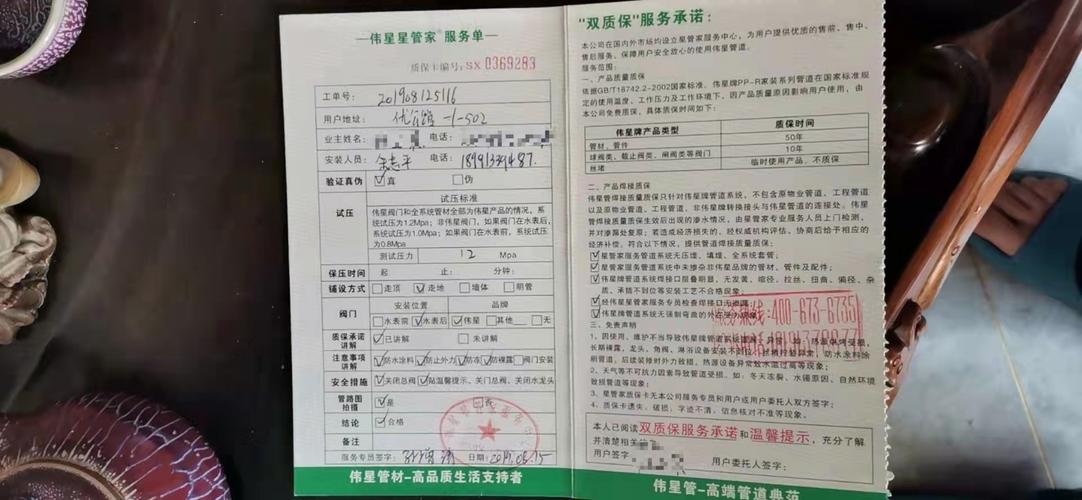 伟星星管家®服务单
质保卡编号:SX 0369283
工单号: 201908125116
用户地址: 一1-502
业主姓名: 电话:
安装人员: 电话:
验证真伪 ☑真 □伪
试压 试压标准
伟星阀门和全系统管材全部为伟星产品的情况,系
统试压为1.2Mpa;非伟星阀门,如果阀门在水表后,
系统试压为1.0Mpa;如果阀门在水表前,系统试压
为0.8Mpa
测试压力 12 Mpa
保压时间 起: 止: 分钟:
铺设方式 □走顶 ☑走地 □墙体 □明管
阀门 安装位置 品牌
□水表前 ☑水表后 ☑伟星 □其他 □无
质保承诺讲解 ☑已讲解 □未讲解
注意事项讲解 ☑防水涂料 ☑防止外力 ☑防冻 ☑防裸露 □阀门安装
安全措施 ☑关闭总阀 ☑贴温馨提示、关门总阀、关闭水龙头
管路图拍摄 ☑是 □否
结论 ☑合格
备注
服务专员签字: 日期:2019.08.15
伟星管材-高品质生活支持者
“双质保”服务承诺:
本公司在国内外市场均设立星管家服务中心,为用户提供优质的售前、售中、
售后服务,保障用户安全放心的使用伟星管道。
服务范围:
一、产品质量质保
依据GB/T18742.2-2002国家标准,伟星牌PP-R家装系列管道在国家标准规
定的使用温度、工作压力及工作环境下,因产品质量原因影响用户使用,由
本公司免费质保,具体质保时间如下:
伟星牌产品类型 质保时间
管材、管件 50年
球阀类、截止阀类、闸阀类等阀门 10年
丝堵 临时使用产品,不质保
二、产品焊接质保
伟星管焊接质量质保只针对伟星牌管道系统,不包含原物业管道、工程管道
以及原物业管道、工程管道、非伟星牌转换接头与伟星管道的连接处。伟星
管焊接质量质保生效后出现的渗水情况,由星管家专业服务人员上门检测,
并对渗漏处复原;若造成经济损失的,经权威机构评估、协商后给予相应的
经济补偿。符合以下情况,提供管道焊接质量质保:
☑星管家服务管道系统无压埋、填埋、全系统套管;
☑星管家服务管道系统中未掺杂非伟星品牌的管材、管件及配件;
☑伟星牌管道系统焊接口层叠明显,无发黄、缩径、拉丝、扭曲、偏径、杂
质、承插不到位等安装工艺不合格现象;
☑经伟星星管家服务专员检查焊接口无渗漏;
☑伟星牌管道系统无强制弯曲的外在受力现象。
400-673-6735
三、免责声明
1、因使用、维护不当导致伟星牌管道系统
长期裸露,龙头、角阀、淋浴设备安装不到位、 防水涂料涂
刷管道,后续装修时外力致损,热源设备异常致水温过高等现象;
2、天气等不可抗力因素导致管道受损。如:冬天冻裂、水锤原因、自然环境
致损管道等现象;
3、星管家质保卡无本公司服务专员和用户或用户委托人双方签字;
4、质保卡遗失、破损、字迹不清,信息核对不准等现象。
本人已阅读双质保服务承诺和温馨提示,充分了解
并清楚相关
用户签字: 用户委托人签字:
伟星管-高端管道典范